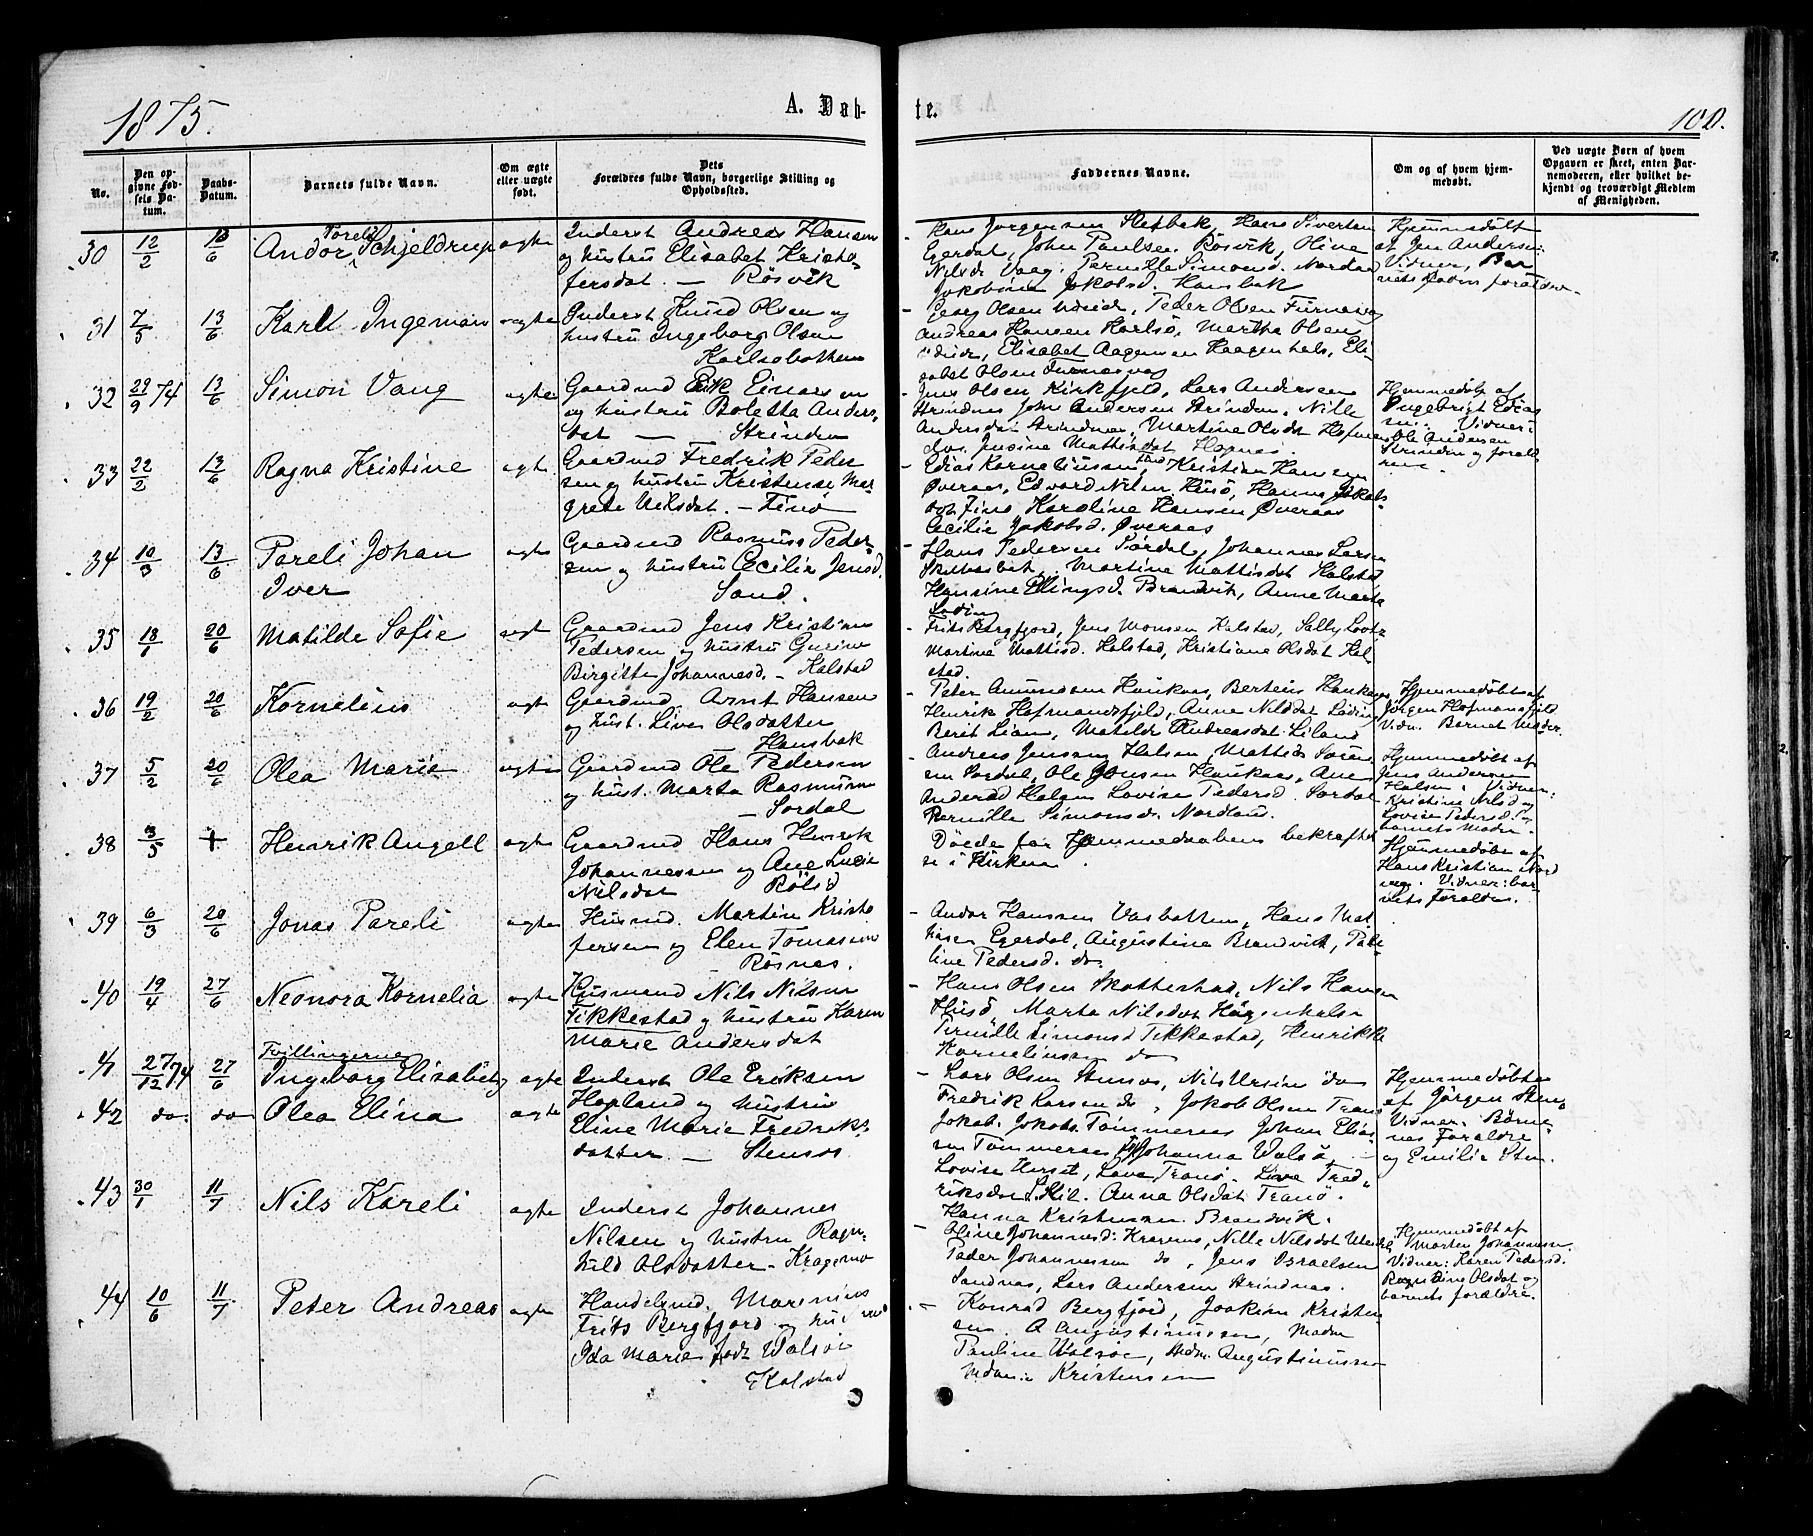 1875.
A. Døb-
te.
100.
No.
Den opgivne Fødsels Datum.
Daabs-Datum.
Barnets fulde Navn.
Om ægte eller uægte født.
Dets Forældres fulde Navn, borgerlige Stilling og Opholdssted.
Faddernes Navne.
Om og af hvem hjemmedøbt.
Ved uægte Børn af hvem Opgaven er skeet, enten Barnemoderen, eller hvilket bekjendt og troværdigt Medlem af Menigheden.
30 12/2 13/6 Andor Pareli Schjeldrup ægte
Inderst Andreas Hansen
og hustru Elisabet Kristo-
fersdat. — Røsvik
Hans Jørgensen Hans Sivertsen
Egerdal, John Paulsen Røsvik, Oline
Nilsd. Vaag, Pernille Simonsd. Nordland
Jakobine Jakobsd. Hansbak
Hjemmedøbt
af Jens Andersen:
Vidner, Bar-
nets forældre.
31 7/5 13/6 Karl Ingeman ægte
Inderst Knud Olsen og
hustru Ingeborg Olsen
Karlsøbotten
Georg Olsen Peder Olsen Furnesvag
Andreas Hansen Karlsø, Martha Olsen
Elisabet Aagensen Haagenhals, Eli-
sabet Olsen Furnesvag
32 29/9 74 13/6 Simon Vang ægte
Gaardmd Erik Einarsen
og hustru Boletta Anders-
dat — Strinden
Jens Olsen Kirkfjeld, Lars Andersen
Strindnes John Andersen Strinden, Nille
Andersdat Strindnes, Martine Olsdat Hofman
Jensine Mattisdat Hopnes.
Hjemmedøbt af
Ingebrigt Edias
sen. Vidner:
Ole Andersen
Strinden og foræl-
drene.
33 22/2 13/6 Ragna Kristine ægte
Gaardmd Fredrik Peder
sen og hustru Kristense Mar-
grete Nilsdat. — Finø
Edias Korneliussen, Kristian Hansen
Øveraas, Edvard Nilsen Husø, Hanna Jakobs-
dat Finø, Karoline Hansen Øveraas
Cecilie Jakobsd. Øveraas
34 10/3 13/6 Pareli Johan
Iver ægte
Gaardmd Rasmus Peder-
sen og hustru Cecilie Jensd.
Sand.
Hans Pedersen Sørdal, Johannes Larsen
Martine Mattisdat Kalstad
Hansine Ellingsd. Brandvik, Anne Marta
Løding
35 18/1 20/6 Matilde Sofie ægte
Gaardmd Jens Kristian
Pedersen og hustru Gurine
Birgitte Johannesd. — Kalstad
Frits Bergfjord, Jens Monsen Kalstad, Sally Lootz
Martine Mattisd. Kalstad, Kristiane Olsdat Kal-
stad.
36 19/2 20/6 Kornelius ægte
Gaardmd Arnt Hansen
og hust. Live Olsdatter
— Hansbak
Peter Amundsen Haukaas, Berteus Haukaas
Henrik Hofmandsfjeld, Anne Nilsdat Løding
Berit Lian, Matilde Andreasdat Liland
Hjemmedøbt af
Jørgen Hofmansfjeld
Vidn. Barnets Moder.
37 5/2 20/6 Olea Marie ægte
Gaardmd Ole Pedersen
og hust. Marta Rasmussen
— Sørdal
Andreas Jensen Halsen, Mattis Søren-
sen Sørdal, Ole Jensen Haukaas, Ane
Andersd Halsen Lovise Pedersd. Sørdal
Pernille Simonsd. Nordland.
Hjemmedøbt af
Jens Andersen
Halsen. Vidner:
Kristine Nilsd og
Lovise Pedersd. og
barnets Moder.
38 3/5 + Henrik Angell ægte
Gaardmd Hans Henrik
Johannessen og Ane Lucie
Nilsdat Rølid
Døde før Hjemmedaabens bekræftel-
se i Kirken.
Hjemmedøbt af
Hans Kristian Nord
Vidner: bar-
nets forældre.
39 6/3 20/6 Jonas Pareli ægte
Husmd. Martin Kristo
fersen og Elen Tomassen
Røsnes.
Andor Hanssen Vasbotten, Hans Mat-
hisen Egerdal, Augustine Brandvik, Pau-
line Pedersd. do.
40 19/4 27/6 Neonora Kornelia ægte
Husmand Nils Nilsen
Tikkestad og hustru Karen
Marie Andersdat
Hans Olsen Skotterstad, Nils Hansen
Husø, Marta Nilsdat Haagenhalsen
Pernille Simonsd Tikkestad, Henrikke
Korneliussen do
41 27/12 74 27/6 Tvillingerne
Ingeborg Elisabet og ægte
42 do. do Olea Elina ægte
Inderst Ole Eriksen
Hopland og hustru
Eline Marie Fredriks-
datter — Stensos
Lars Olsen Stensos, Nils Ursin do
Fredrik Larsen do, Jakob Olsen Tranø
Jakob Jakobs. Tømmernes Johan Elias-
sen Tømmernes Johanna Walsø
Lovise Lava Tranø. Live Fred-
riksdat Anna Olsdat Tranø.
Hjemmedøbte
af Jørgen Sten.
Vidner: Børne-
nes Forældre
og Emilie Sten.
43 30/1 11/7 Nils Kareli ægte
Inderst Johannes
Nilsen og hustru Ragn-
hild Olsdatter — Kragemo
Hanna Kristensen Brandvik.
Oline Johannesd: Kragemo, Nille Nilsdat
Peder Johannessen do, Jens Israelsen
Sandnes, Lars Andersen Strindnes.
Hjemmedøbt af
Morten Johannessen.
Vidner: Karen Pedersd.
Olsdat og
barnets forældre.
44 10/6 11/7 Peter Andreas ægte
Handelsmd. Marenius
Frits Bergfjord og hustru
Ida Marie født Walsøe
Kalstad
Konrad Bergfjord, Joakim Kristen
sen. A Augustinussen, Madm
Pauline Walsøe, Madm. Augustinussen
Madam Kristensen